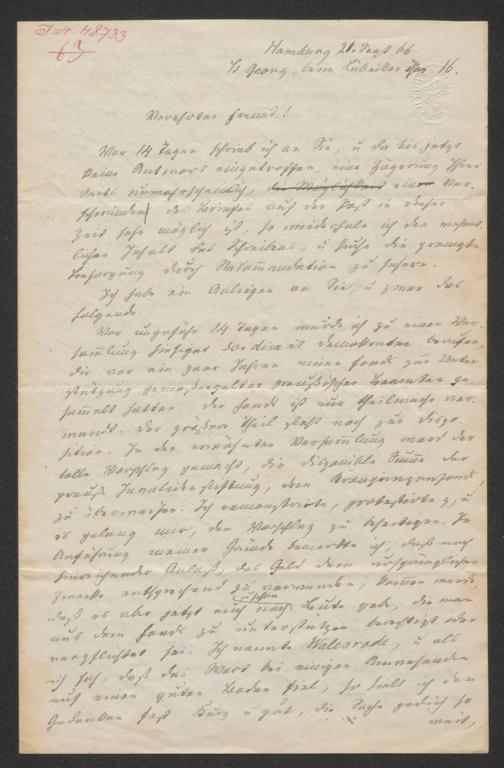 J.N. 48733
Hamburg 21. Sept 66
St Georg, beim Lübecker Thor 16.
Verehrter Freund!
Vor 14 Tagen schrieb ich an Sie, u da bis jetzt
keine Antwort eingetroffen, eine Zögerung Ihrer
seits unwahrscheinlich, die Möglichkeit eines Ver-
schwindens des Briefes auf der Post in dieser
Zeit sehr möglich ist, so wiederhole ich den wesent-
lichen Inhalt des Schreibens, u suche die prompte
Besorgung durch Recommandation zu sichern.
Ich habe ein Anliegen an Sie, u zwar das
folgende.
Vor ungefähr 14 Tagen wurde ich zu einer Ver-
sammlung hiesiger soi disant Demokraten berufen,
die vor ein paar Jahren einen Fonds zur Unter
stützung gemaßregelter preußischer Beamten ge-
sammelt hatten. Der Fonds ist nur theilweise ver-
wandt. Der größere Theil steht noch zur Dispo-
sition. In der erwähnten Versammlung ward der
tolle Vorschlag gemacht, die disponible Summe der
preuß. Invalidenstiftung, dem Kronprinzenfonds,
zu überweisen. Ich remonstrirte, protestirte, u
es gelang mir, den Vorschlag zu beseitigen. In
Anführung meiner Gründe bemerkte ich, daß noch
hinreichender Anlaß, das Geld dem ursprünglichen
Zwecke entsprechend zu verwenden, kommen werde,
daß es aber jetzt auch schon noch Leute gebe, die man
aus dem Fonds zu unterstützen berechtigt oder
verpflichtet sei. Ich nannte Walesrode, u als
ich sah, daß das Wort bei einigen Anwesenden
auf einen guten Boden fiel, so hielt ich den
Gedanken fest. Kurz u gut, die Sache gedieh so
weit,